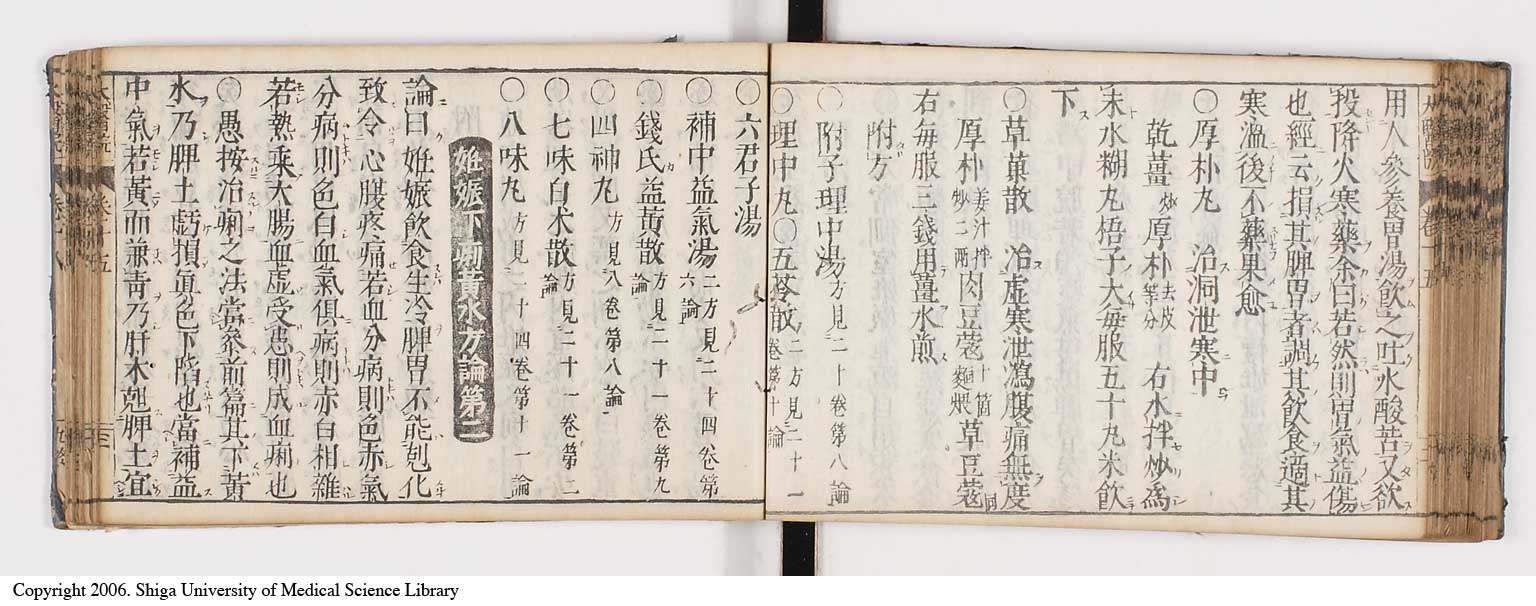 用人參養胃湯飲之吐水酸苦又欲
投降火寒藥余曰若然則胃氣益傷
也經云損其脾胃者調其飲食適其
寒溫後不藥果愈
○厚朴丸　治洞泄寒中
乾薑炒厚朴去皮等分　右水拌炒爲
末水糊丸梧子大每服五十丸米飲
下
○草菓散　治虛寒泄瀉腹痛無度
厚朴姜汁拌炒二兩肉豆蔻十箇麵煨草豆蔻同
右每服三錢用薑水煎
附方
○附子理中湯方見二十卷第八論
○理中丸○五苓散二方見二十一卷第十論
○六君子湯
○補中益氣湯二方見二十四卷第六論
○錢氏益黃散方見二十一卷第九論
○四神丸方見八卷第八論
○七味白朮散方見二十一卷第二論
○八味丸方見二十四卷第十一論
姙娠下痢黃水方論第二
論曰姙娠飲食生冷脾胃不能剋化
致令心腹疼痛若血分病則色赤氣
分病則色白血氣俱病則赤白相雜
若熱乘大腸血虛受患則成血痢也
○愚按治痢之法當參前篇其下黃
水乃脾土虧損眞色下陷也當補益
中氣若黃而兼靑乃肝木剋脾土宜
Copyright 2006. Shiga University of Medical Science Library